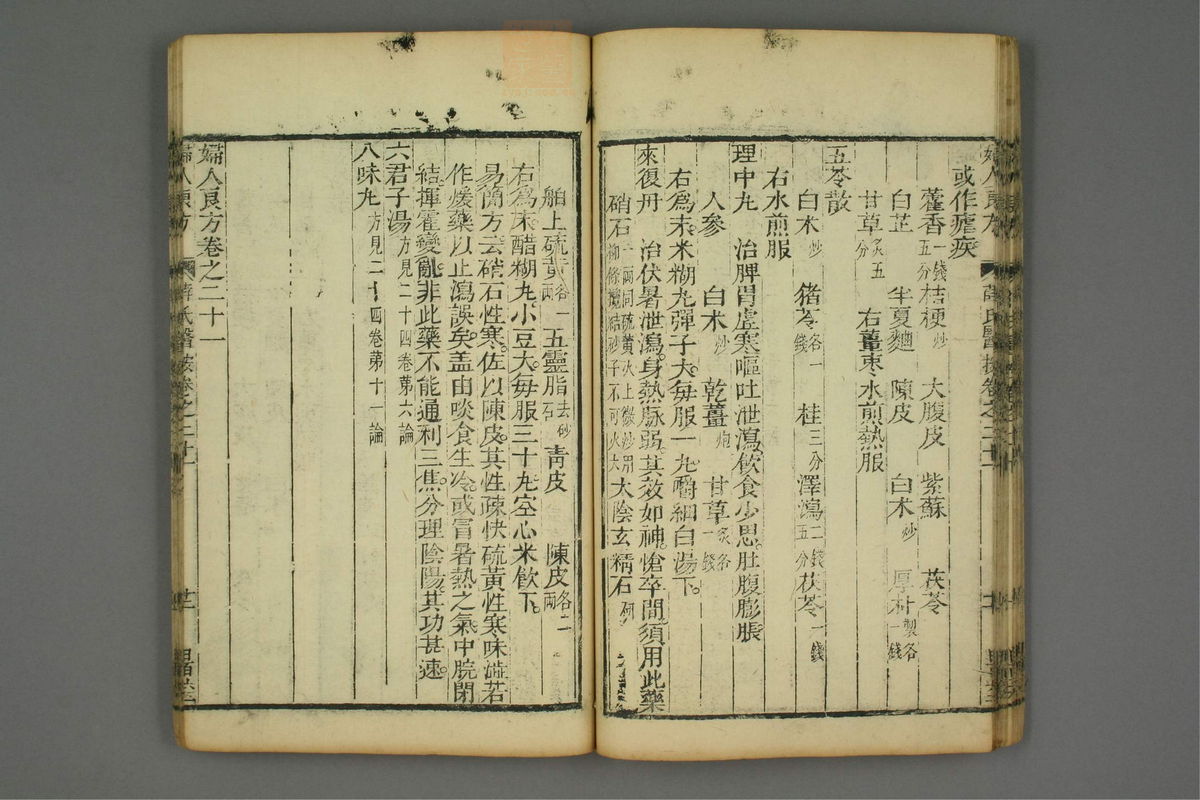 或作瘧疾
藿香一錢五分 桔梗炒 大腹皮 紫蘇 茯苓
白芷 半夏麯 陳皮 白朮炒 厚朴製各一錢
甘草炙五分 右薑棗水煎熱服
五苓散
白朮炒 猪苓各一錢 桂三分 澤瀉二錢五分 茯苓一錢
右水煎服
理中丸 治脾胃虛寒嘔吐泄瀉飲食少思肚腹膨脹
人參 白朮炒 乾薑炮 甘草炙各一錢
右爲末米糊丸彈子大每服一丸嚼細白湯下
來復丹 治伏暑泄瀉身熱脉弱其效如神愴卒間須用此藥
硝石一兩同硫黃火上微炒用柳條攪結砂子不可火大 太陰玄精石研
舶上硫黃各一兩 五靈脂去砂石 靑皮 陳皮各二兩
右爲末醋糊丸小豆大每服三十丸空心米飮下
易簡方云硝石性寒佐以陳皮其性疎快硫黃性寒味澁若
作煖藥以止瀉誤矣盖由啖食生冷或冒暑熱之氣中脘閉
結揮霍變亂非此藥不能通利三焦分理陰陽其功甚速
六君子湯方見二十四卷第六論
八味丸方見二十四卷第十一論
婦人良方卷之二十一